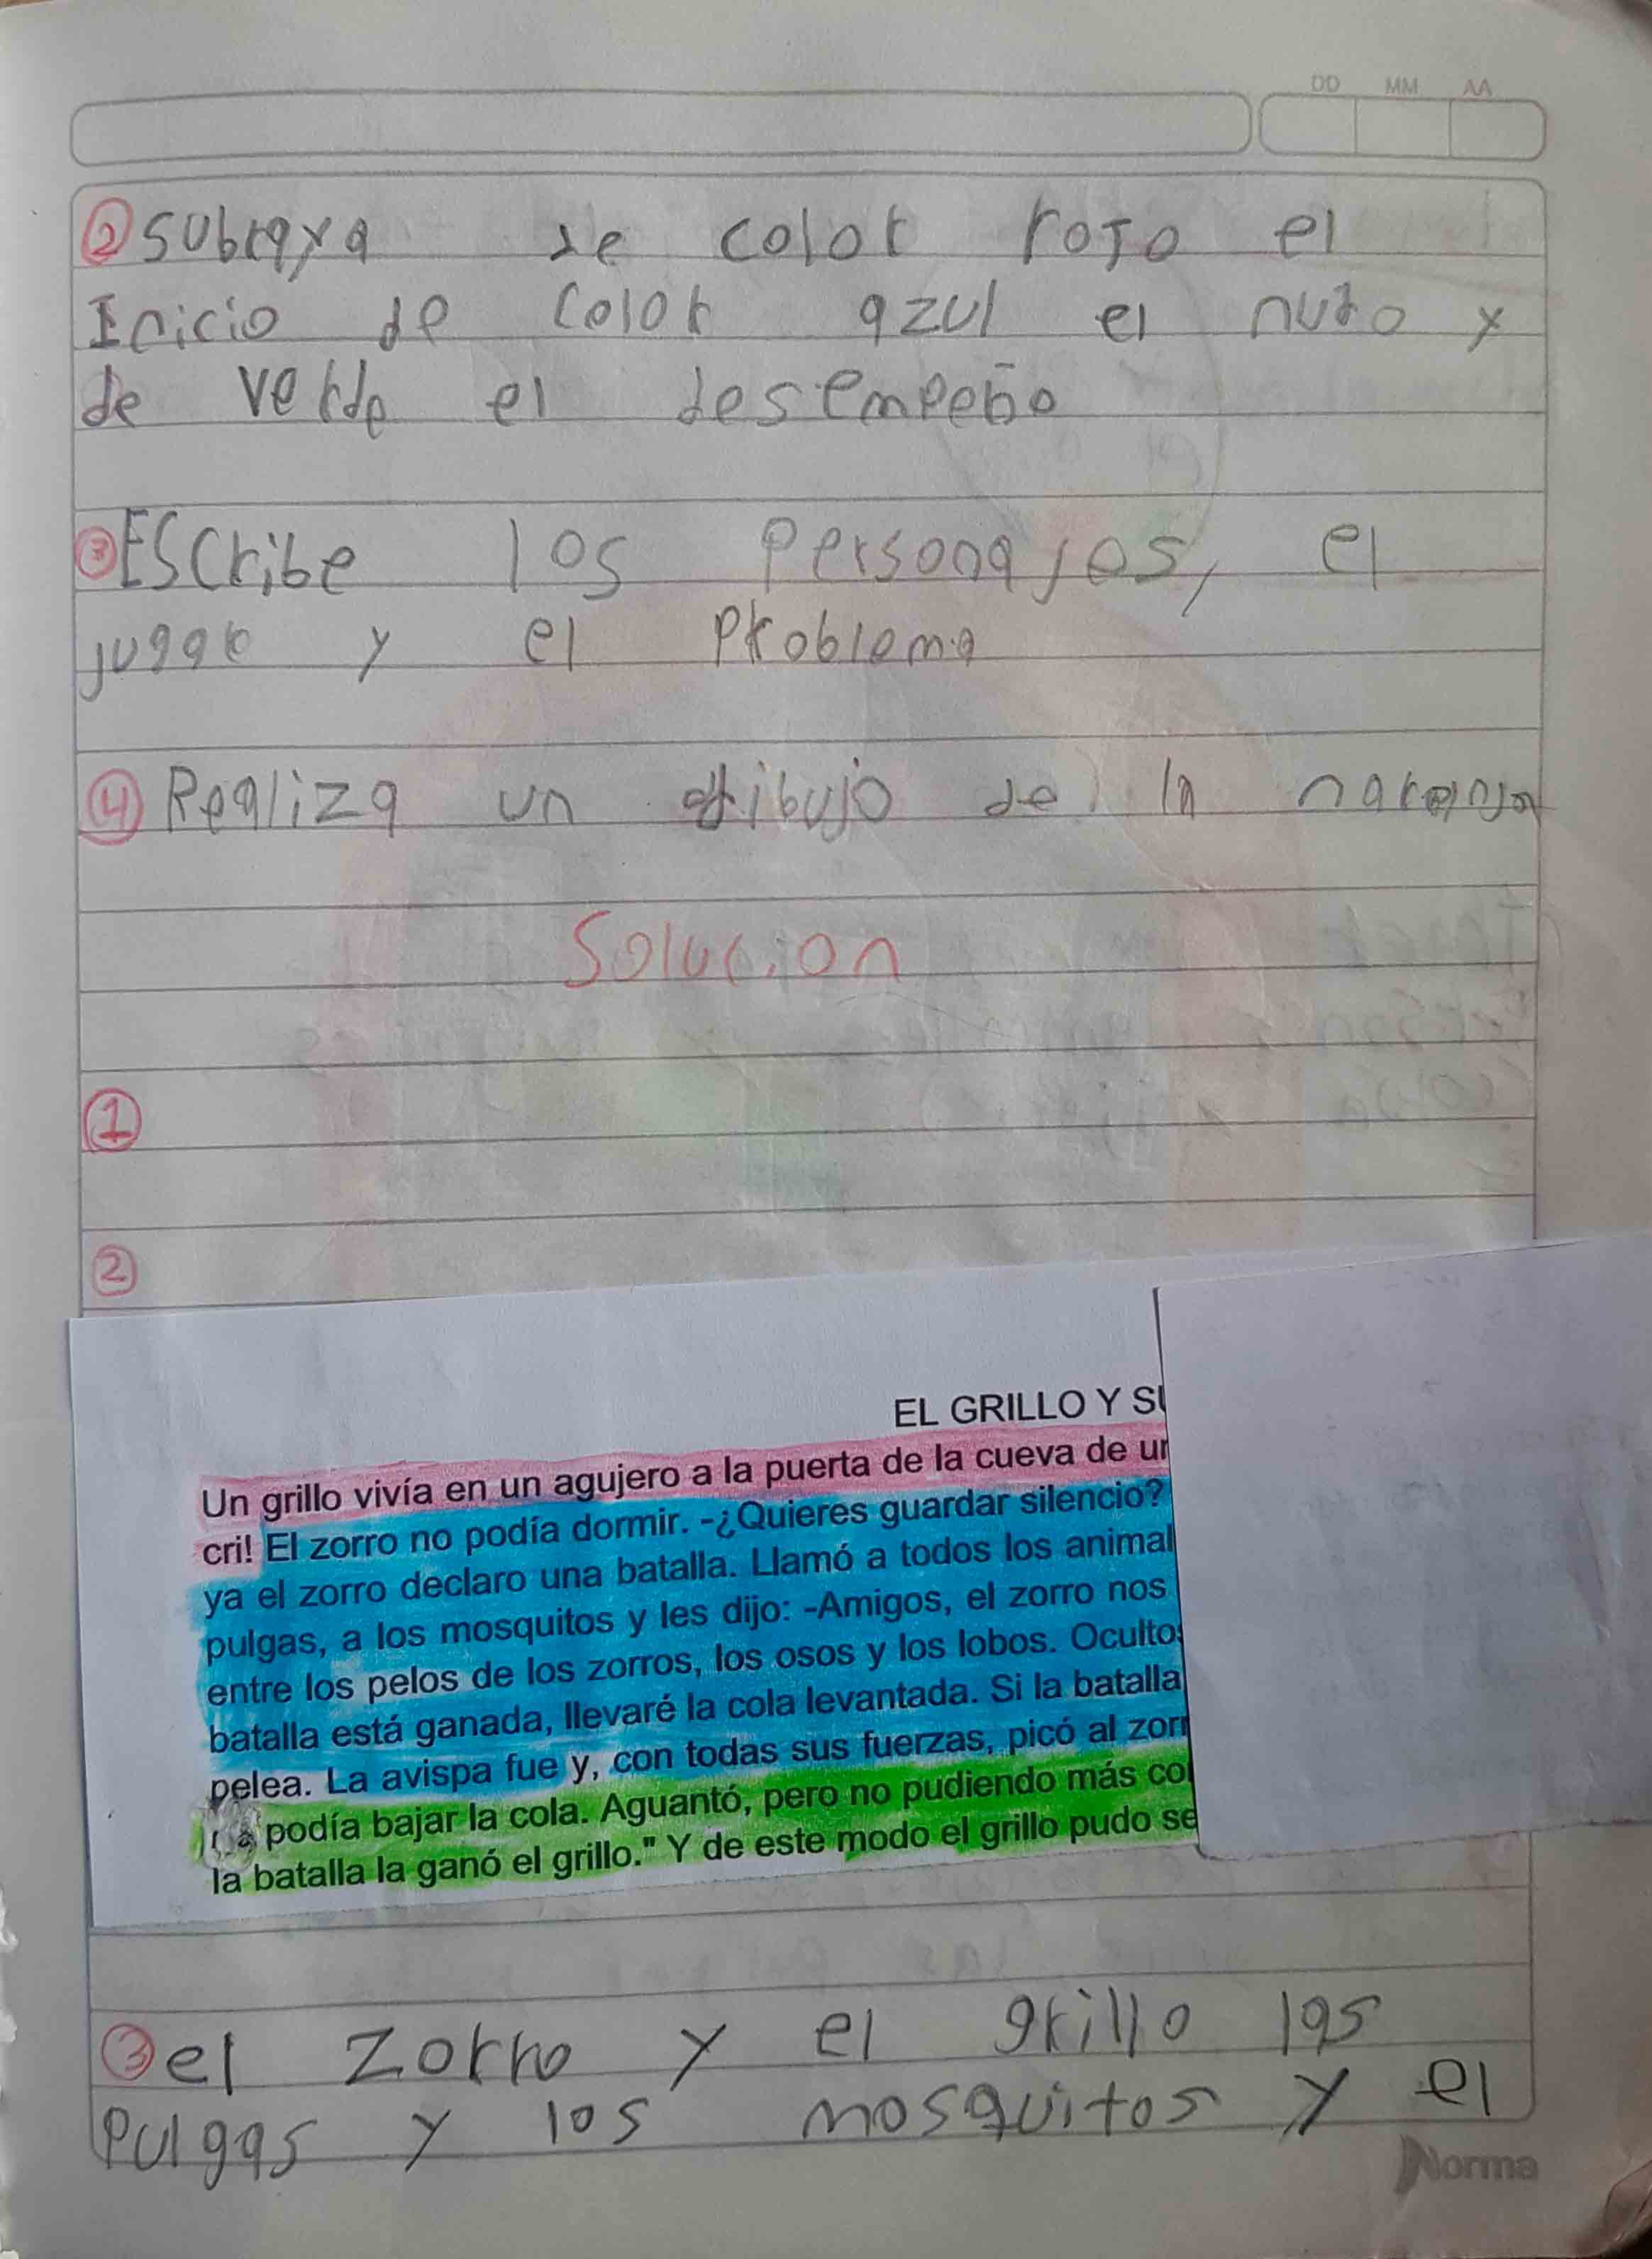 DD MM AA
② Subraya de color rojo el
Inicio de color azul el nudo y
de verde el desempeño
③ Escribe los personajes, el
jugar y el problema
④ Realiza un dibujo de la
Solucion
①
②
EL GRILLO Y SU
Un grillo vivía en un agujero a la puerta de la cueva de un
cri! El zorro no podía dormir. -¿Quieres guardar silencio?
ya el zorro declaro una batalla. Llamó a todos los animal
pulgas, a los mosquitos y les dijo: -Amigos, el zorro nos
entre los pelos de los zorros, los osos y los lobos. Ocultos
batalla está ganada, llevaré la cola levantada. Si la batalla
pelea. La avispa fue y, con todas sus fuerzas, picó al zorr
podía bajar la cola. Aguantó, pero no pudiendo más co
la batalla la ganó el grillo." Y de este modo el grillo pudo se
③ el zorro y el grillo las
pulgas y los mosquitos y el
Norma